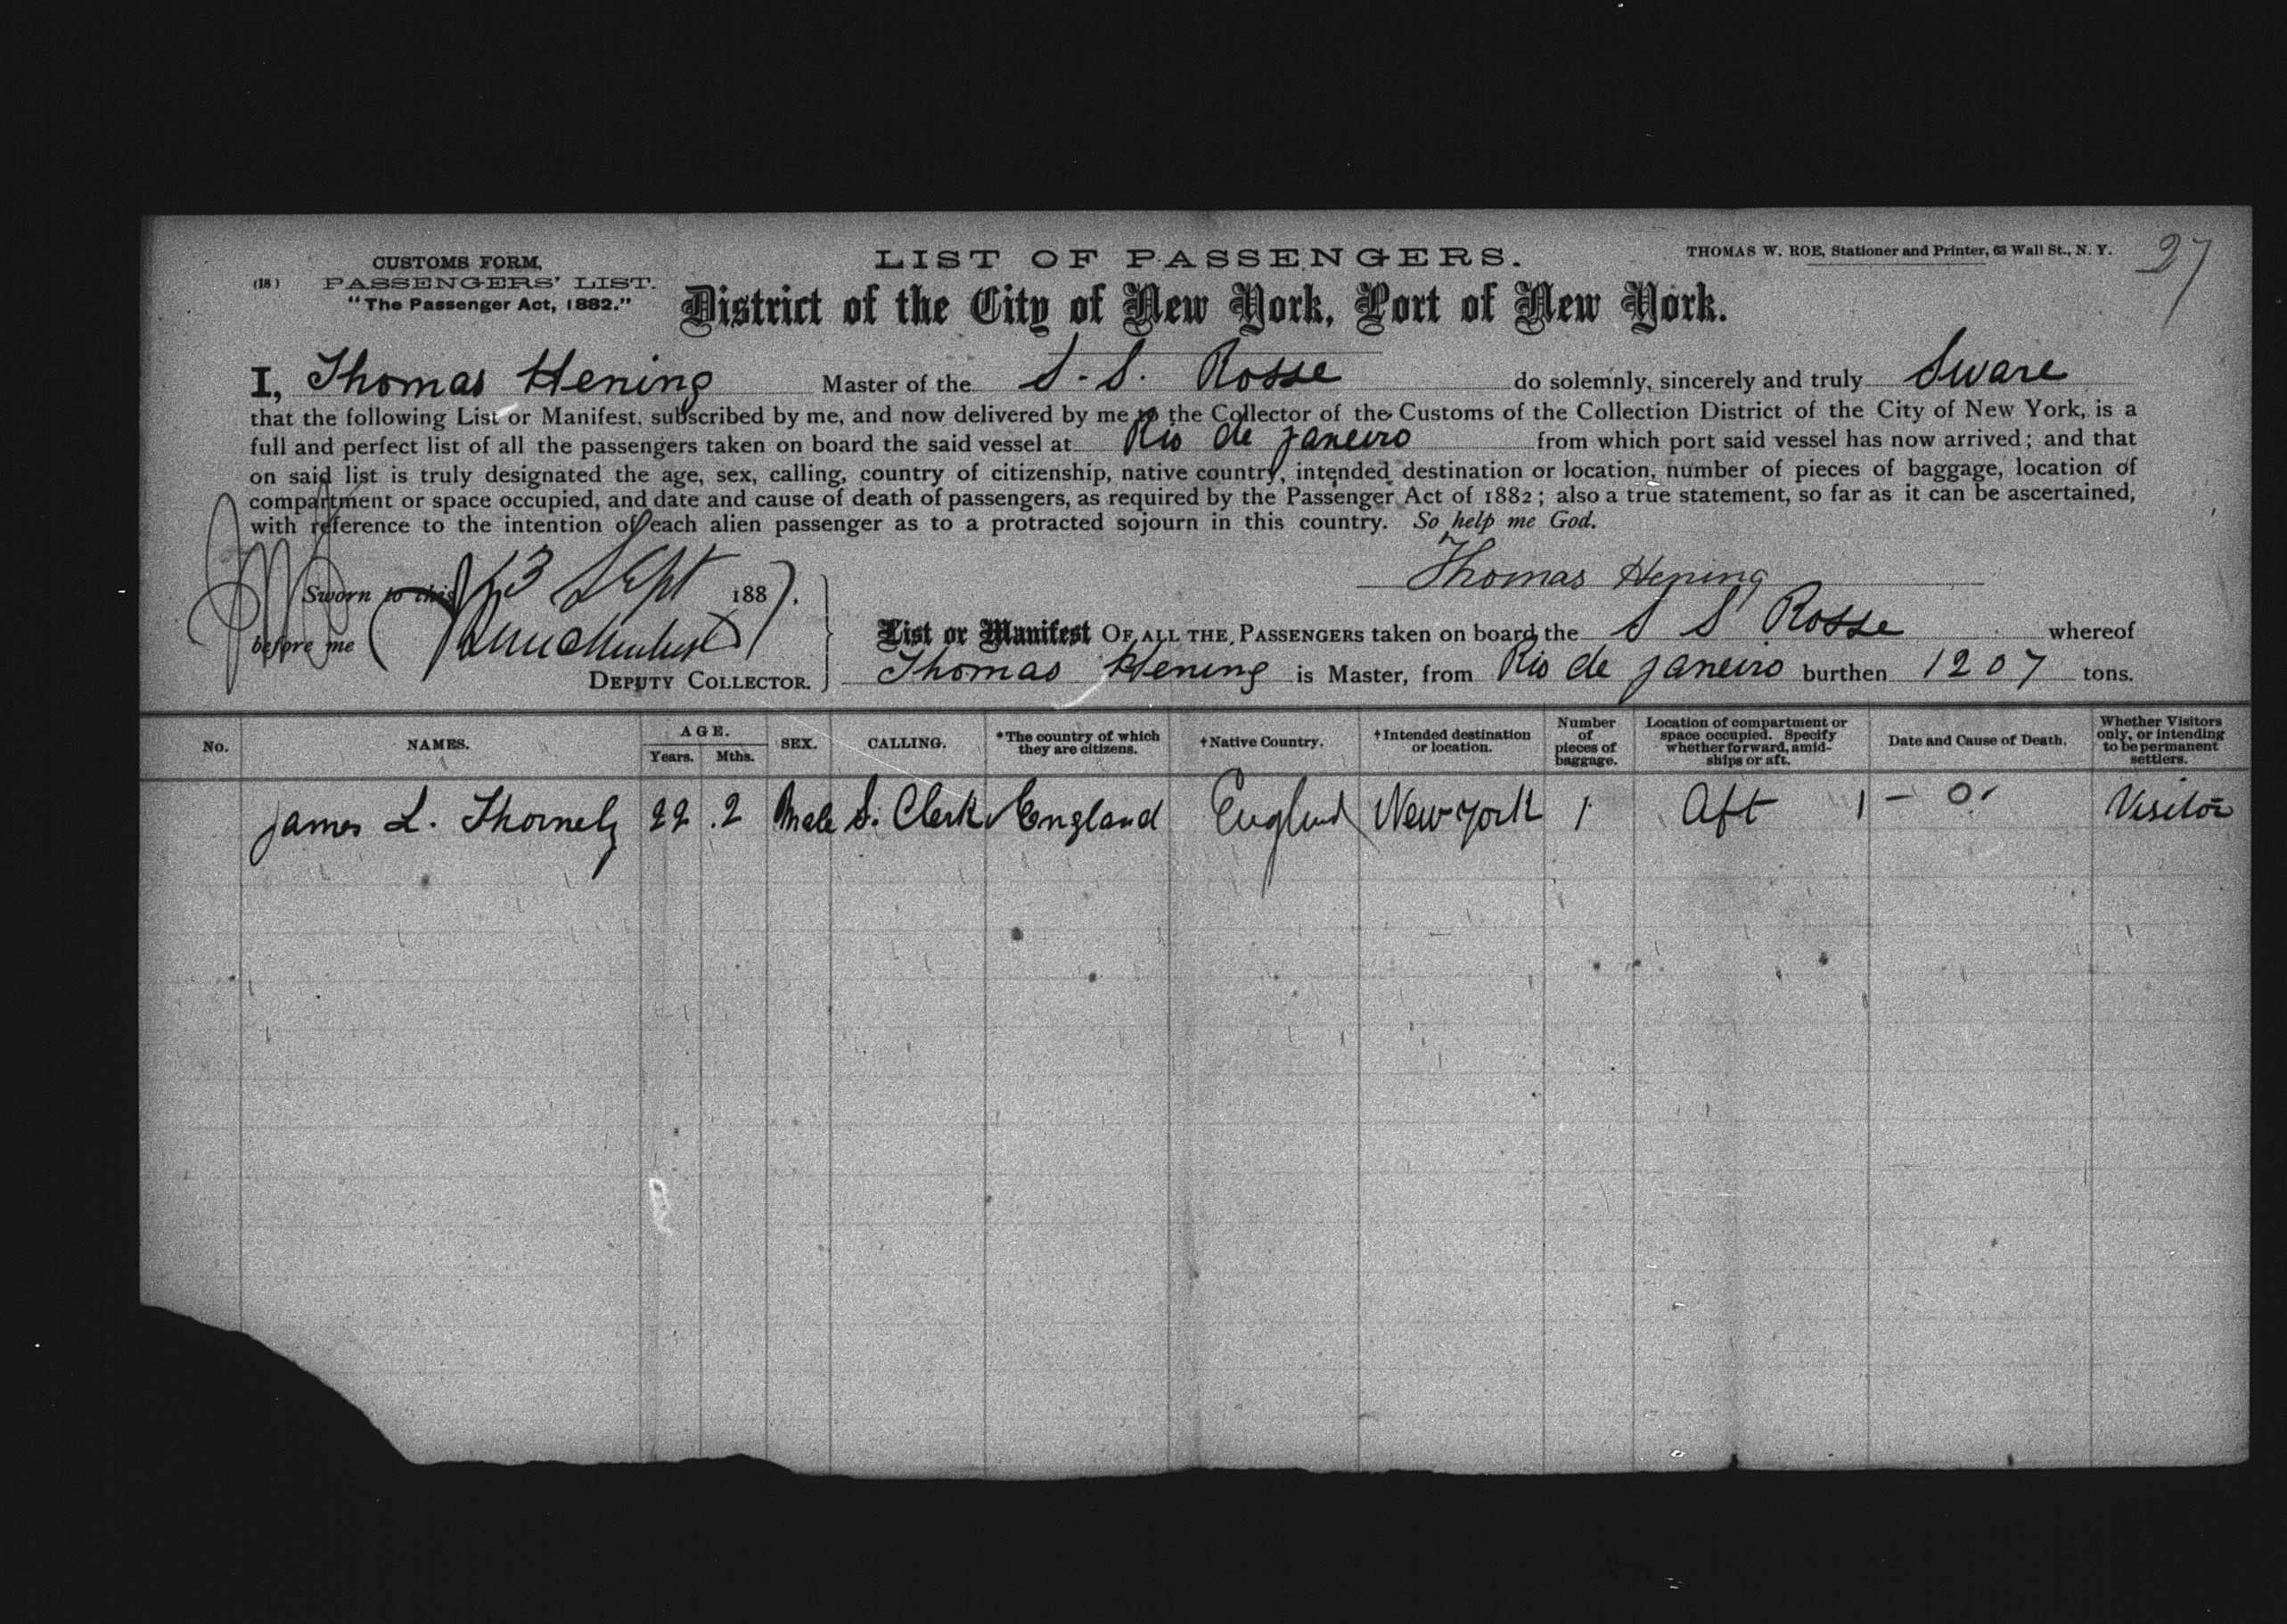 CUSTOMS FORM,
(18) PASSENGERS' LIST.
"The Passenger Act, 1882."
LIST OF PASSENGERS.
THOMAS W. ROE, Stationer and Printer, 63 Wall St., N. Y.
27
District of the City of New York, Port of New York.
I, Thomas Hening Master of the S. S. Rosse do solemnly, sincerely and truly Sware
that the following List or Manifest, subscribed by me, and now delivered by me to the Collector of the Customs of the Collection District of the City of New York, is a
full and perfect list of all the passengers taken on board the said vessel at Rio de janeiro from which port said vessel has now arrived; and that
on said list is truly designated the age, sex, calling, country of citizenship, native country, intended destination or location, number of pieces of baggage, location of
compartment or space occupied, and date and cause of death of passengers, as required by the Passenger Act of 1882; also a true statement, so far as it can be ascertained,
with reference to the intention of each alien passenger as to a protracted sojourn in this country. So help me God.
Thomas Hening
Sworn to this 13 Sept 1887.
before me
DEPUTY COLLECTOR.
List or Manifest OF ALL THE PASSENGERS taken on board the S S Rosse whereof
Thomas Hening is Master, from Rio de janeiro burthen 1207 tons.
No. NAMES. AGE. Years. Mths. SEX. CALLING. *The country of which they are citizens. †Native Country. †Intended destination or location. Number of pieces of baggage. Location of compartment or space occupied. Specify whether forward, amid-ships or aft. Date and Cause of Death. Whether Visitors only, or intending to be permanent settlers.
james L. Thornely 22 .2 Male S. Clerk England England New york 1 Aft 1 - 0. Visitor